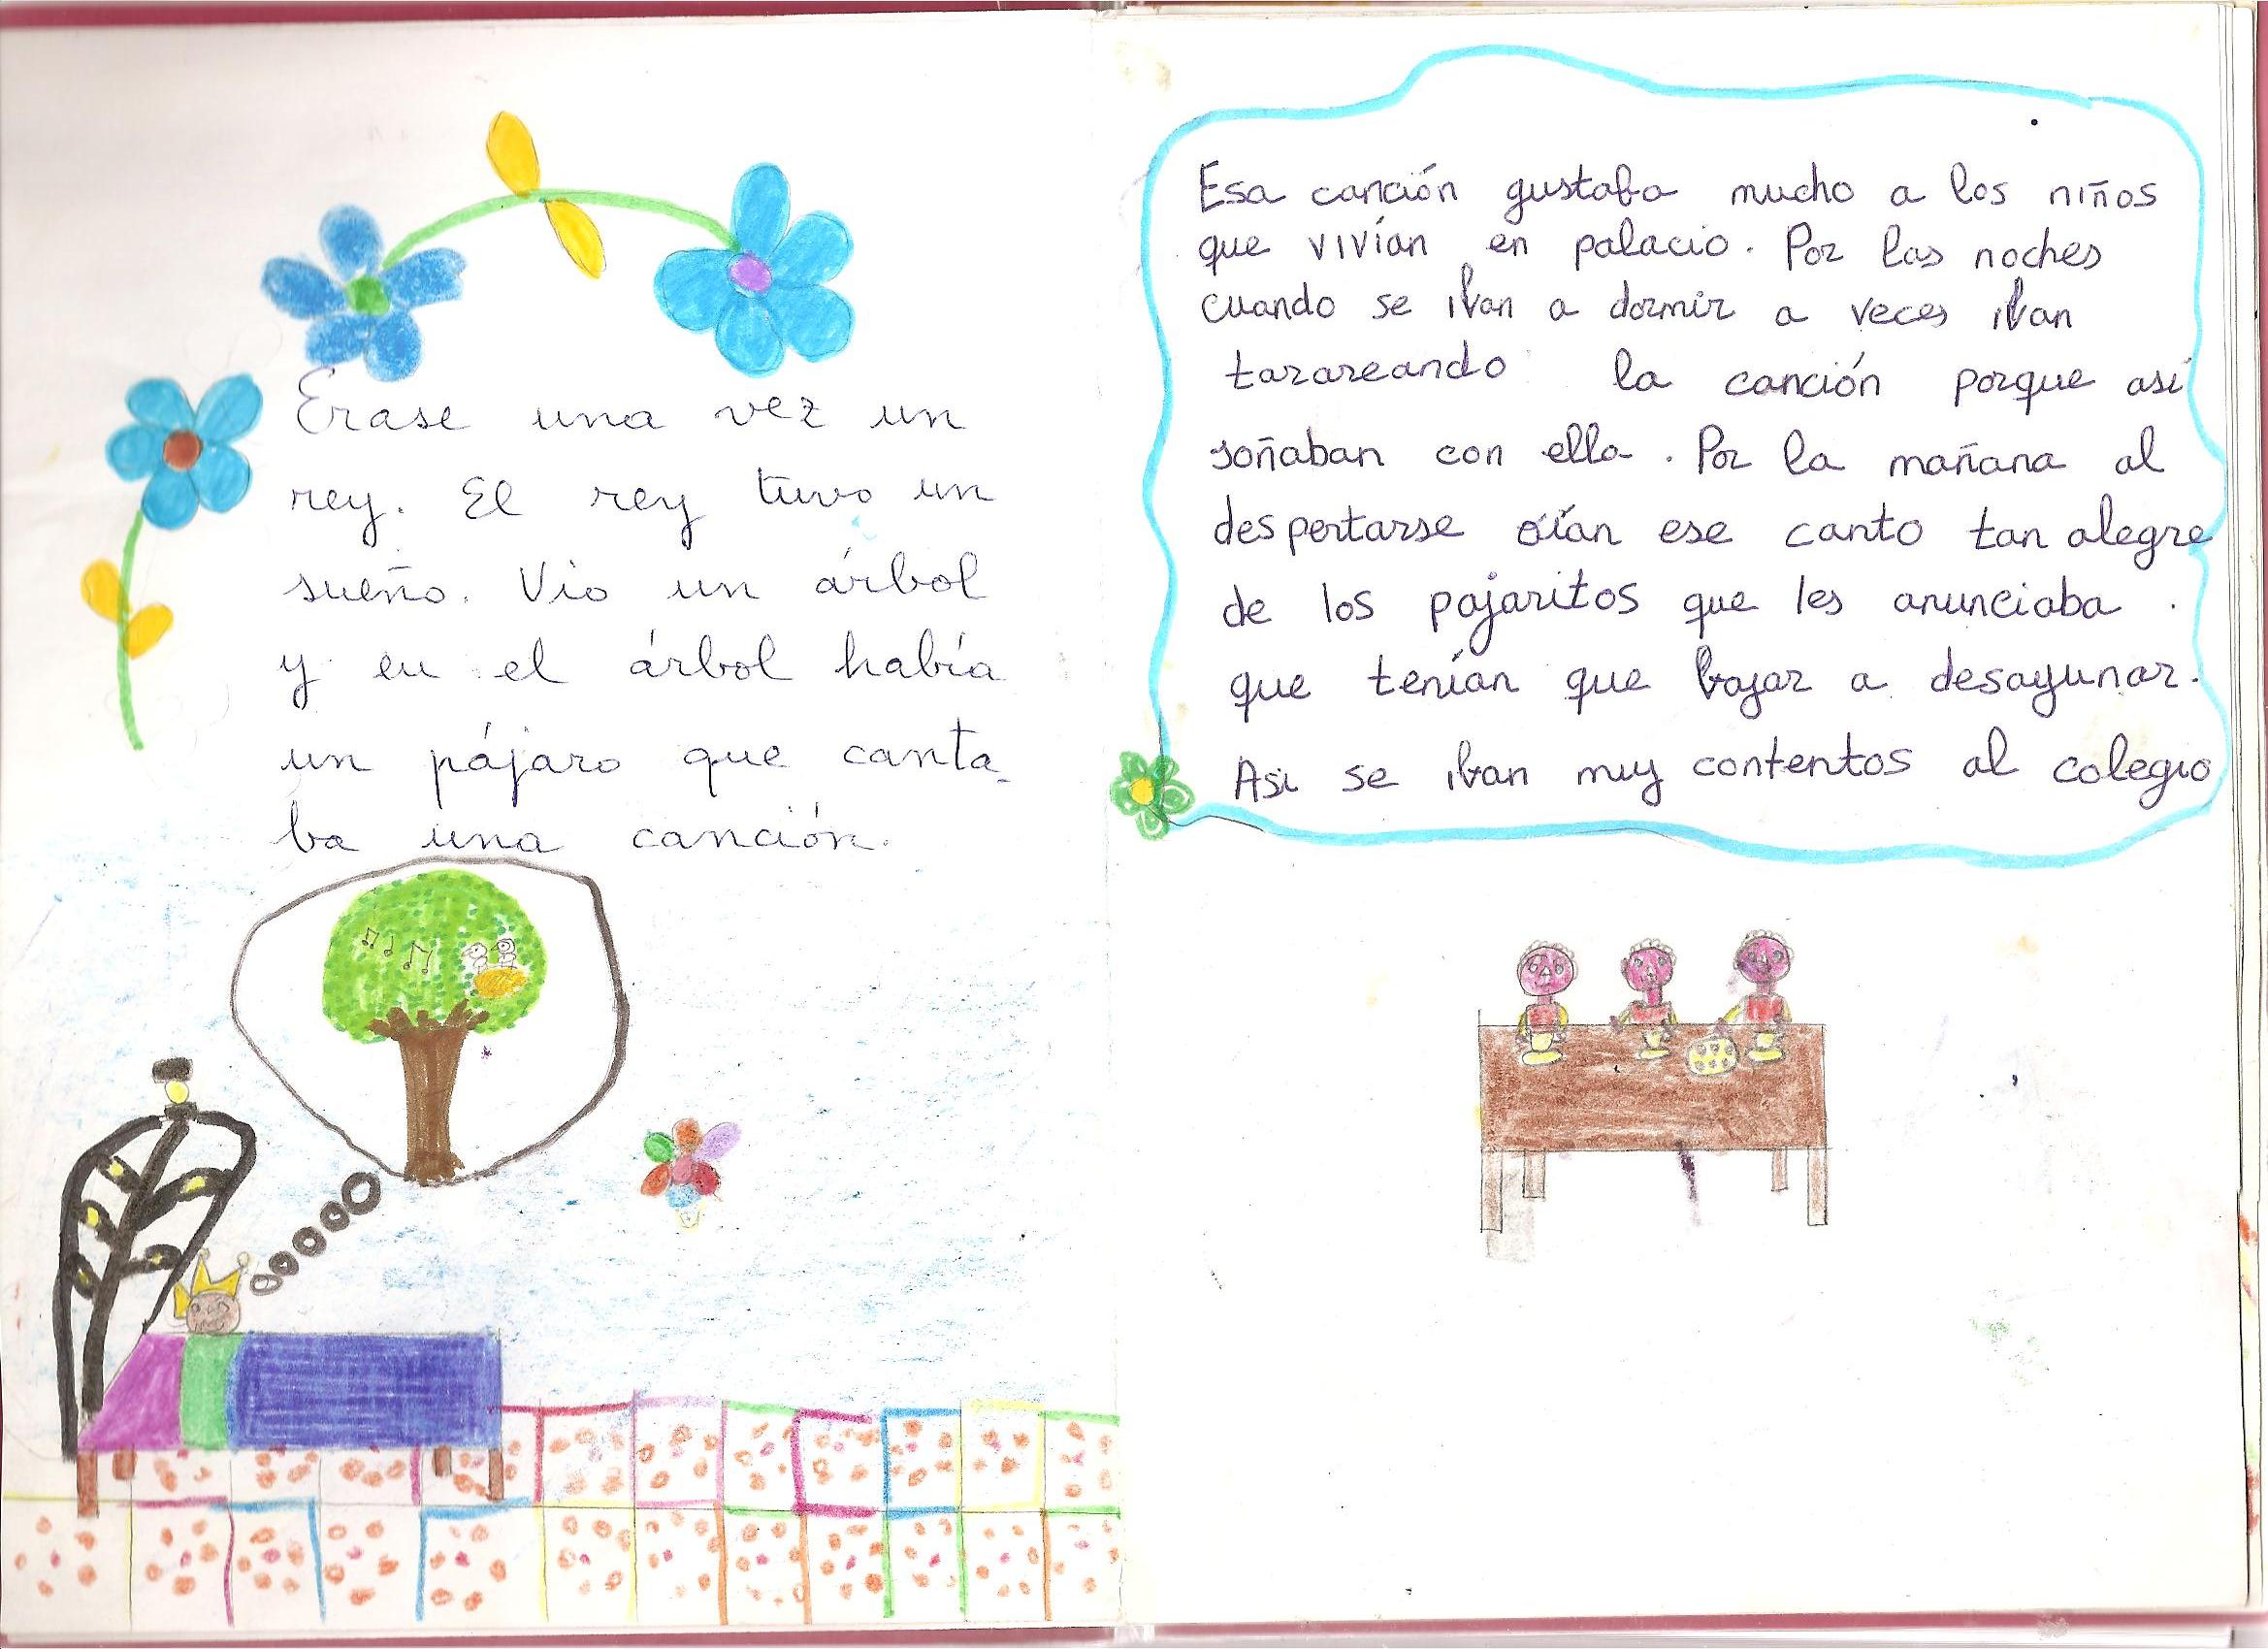 Erase una vez un
rey. El rey tuvo un
sueño. Vio un árbol
y en el árbol había
un pájaro que canta-
ba una canción.
Esa canción gustaba mucho a los niños
que vivían en palacio. Por las noches
cuando se iban a dormir a veces iban
tarareando la canción porque así
soñaban con ella. Por la mañana al
despertarse oían ese canto tan alegre
de los pajaritos que les anunciaba
que tenían que bajar a desayunar.
Asi se iban muy contentos al colegio